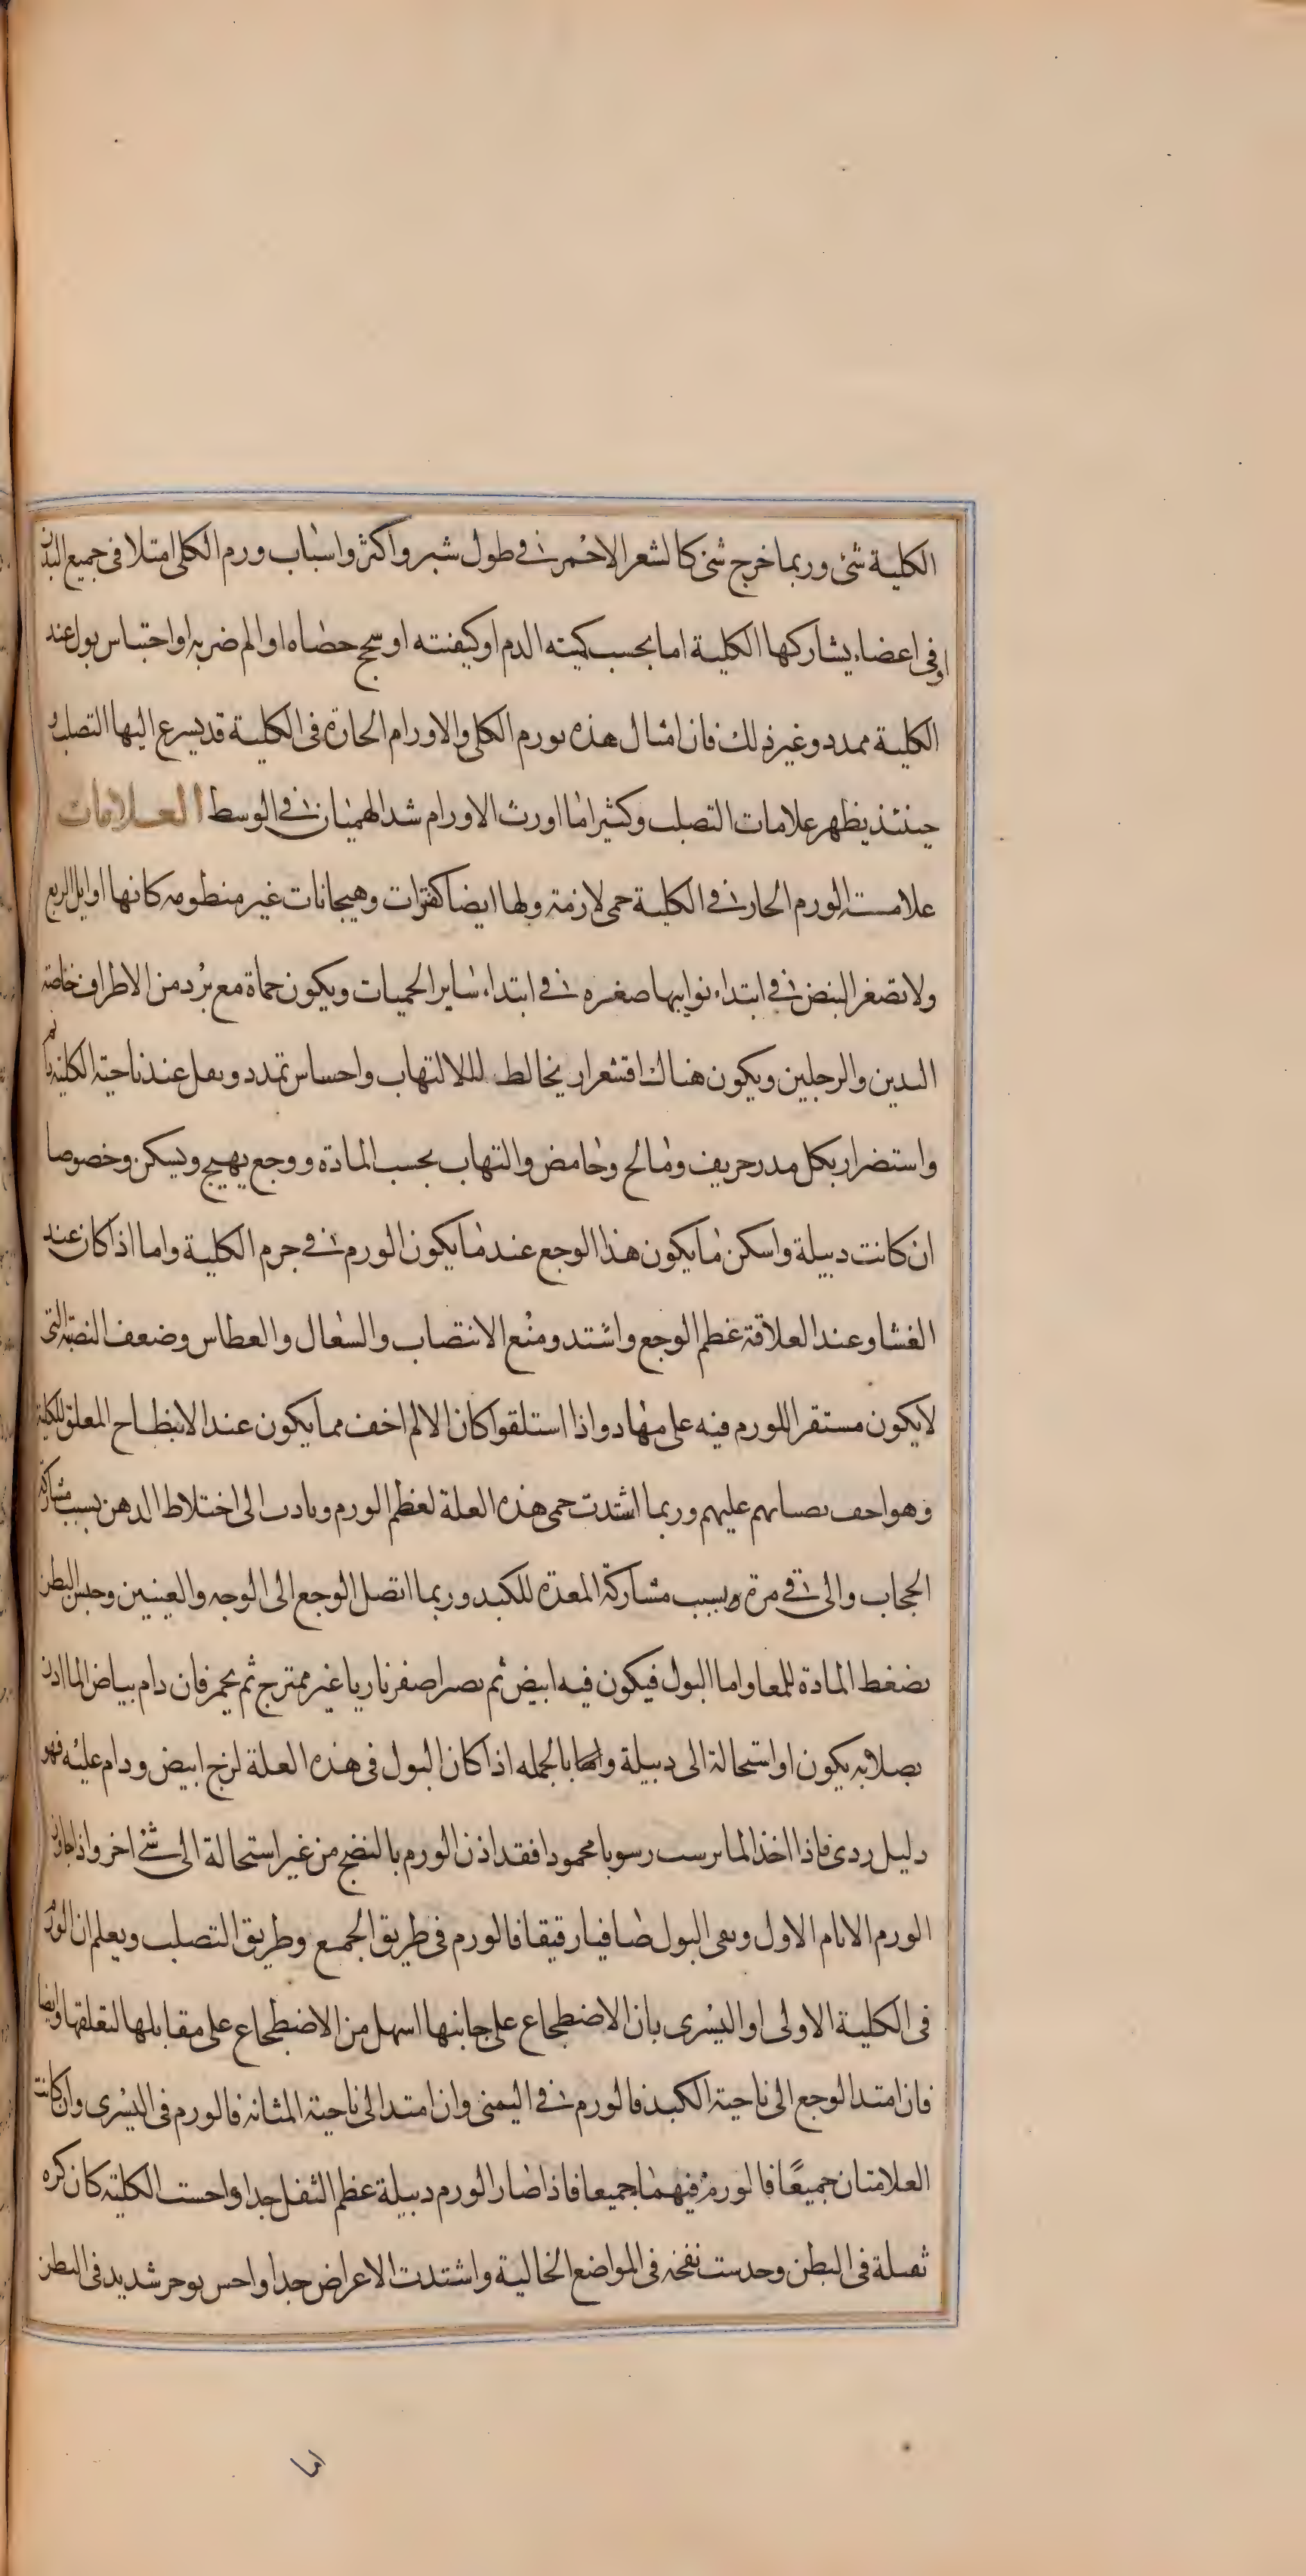 الكلية شئ وربما خرج شئ كالشعر الاحمر في طول شبر واكثر واسباب ورم الكلى امتلا فى جميع البدن
او فى اعضاء يشاركها الكلية اما بحسب كميته الدم او كيفيته او سحج حصاه او الم ضربه او احتباس بول عند
الكلية ممدد وغير ذلك فان امثال هذه يورم الكلى والاورام الحارة فى الكلية قد يسرع اليها التصلب و
حينئذ يظهر علامات التصلب وكثيرا ما اورث الاورام شد الهميان في الوسط العلامات
علامت الورم الحار في الكلية حمى لازمة ولها ايضا كفترات وهيجانات غير منظومه كانها اوايل الربع
ولا تصغر النبض في ابتداء نوايبها صغره في ابتداء ساير الحميات ويكون حماة مع برد من الاطراف خاصة
اليدين والرجلين ويكون هناك اقشعرار يخالط للالتهاب واحساس تمدد وثقل عند ناحية الكلية
واستضرار بكل مدر حريف ومالح وحامض والتهاب بحسب المادة ووجع يهيج ويسكن وخصوصا
ان كانت دبيلة واسكن ما يكون هذا الوجع عند ما يكون الورم في جرم الكلية واما اذا كان عند
الغشا وعند العلاقة عظم الوجع واشتد ومنع الانتصاب والسعال والعطاس وضعف النصبة التى
لا يكون مستقر اللورم فيه على مهاد واذا استلقوا كان الالم اخف مما يكون عند الانبطاح المعلق للكلية
وهو احف عليهم وربما اشتدت حمى هذه العلة لعظم الورم وبادت الى اختلاط الدهن بسبب مشاركة
الحجاب والى قي مرة وبسبب مشاركة المعدة للكبد وربما اتصل الوجع الى الوجه والعينين وحبس البطن
بضغط المادة للمعا واما البول فيكون فيه ابيض ثم يصر اصفر ناريا غير ممترج ثم يحمر فان دام بياض الما اذن
بصلابه يكون او استحالة الى دبيلة بالجمله اذا كان البول فى هذه العلة لزج ابيض ودام عليه فهو
دليل ردى فاذا اخذ الما يرسب رسوبا محمودا فقد اذن الورم بالنضج من غير استحالة الى شئ اخر واذا جاوز
الورم الايام الاول وبقى البول صافيا رقيقا فالورم فى طريق الجمع وطريق التصلب ويعلم ان الورم
فى الكلية الاولى او اليسرى بان الاضطجاع على جانبها اسهل من الاضطجاع على مقابلها لتعلقها وايضا
فان امتد الوجع الى ناحية الكبد فالورم في اليمنى وان امتد الى ناحية المثانه فالورم فى اليسرى وان كانت
العلامتان جميعًا فالورم فيهما جميعا فاذا صار الورم دبيلة عظم الثفل جدا واحست الكلية كان كره
ثقيلة فى البطن وحدست نفخه فى المواضع الخالية واشتدت الاعراض جدا واحس بوجر شديد فى البطن
اما